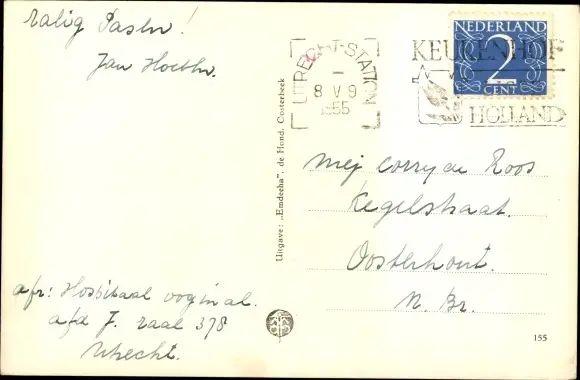 Zalig Pasen!
Jan
NEDERLAND
2
CENT
UTRECHT-STATION
8 V 9
1955
KEUKENHOF
HOLLAND
Uitgave: „Emdeeha”, de Hond, Oosterbeek
Mej Corry de Roos
Kegelstraat.
Oosterhout.
N. Br.
afz: Hospitaal oog in al.
afd J. zaal 378
Utrecht.
155